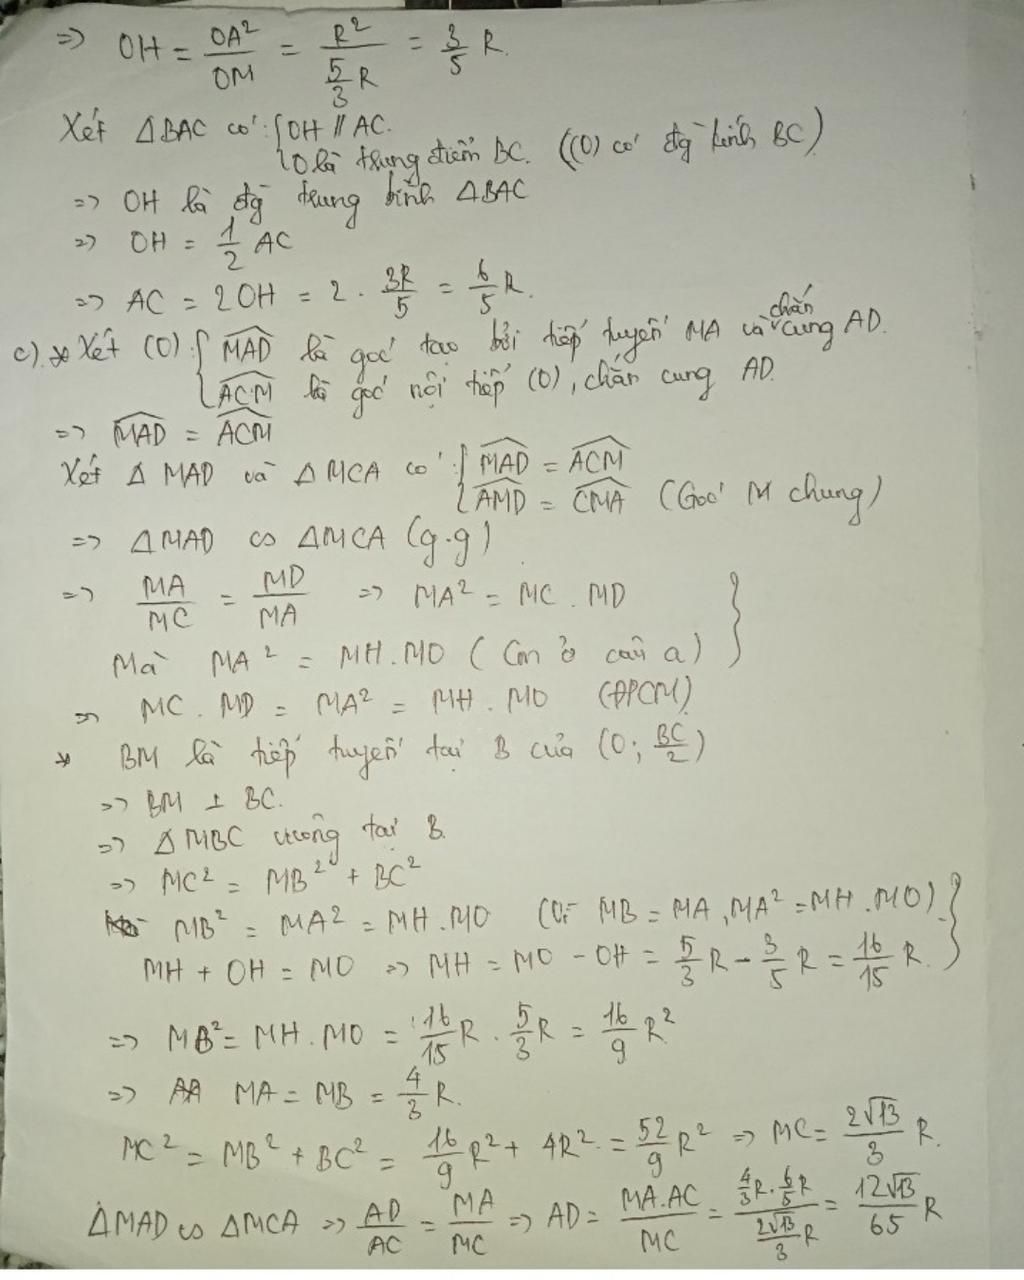 => OH = OA²/OM = R²/(5/3 R) = 3/5 R.
Xét △BAC có: { OH // AC.
O là trung điểm BC. ((O) có đg kính BC)
=> OH là đg trung bình △BAC
=> OH = 1/2 AC
=> AC = 2OH = 2 . 3R/5 = 6/5 R.
c) * Xét (O) { MAD là góc tạo bởi tiếp tuyến MA và chắn cung AD.
ACM là góc nội tiếp (O), chắn cung AD.
=> MAD = ACM
Xét △ MAD và △ MCA có: { MAD = ACM
AMD = CMA (Góc M chung)
=> △MAD ∽ △MCA (g.g)
=> MA/MC = MD/MA => MA² = MC . MD }
Mà MA² = MH.MO (Cm ở câu a)
=> MC . MD = MA² = MH . MO (ĐPCM)
* BM là tiếp tuyến tại B của (O; BC/2)
=> BM ⊥ BC.
=> △ MBC vuông tại B.
=> MC² = MB² + BC²
MB² = MA² = MH.MO (Vì MB = MA, MA² = MH.MO) }
MH + OH = MO => MH = MO - OH = 5/3 R - 3/5 R = 16/15 R.
=> MB² = MH . MO = 16/15 R . 5/3 R = 16/9 R²
=> MA = MB = 4/3 R.
MC² = MB² + BC² = 16/9 R² + 4R² = 52/9 R² => MC = 2√13/3 R.
△MAD ∽ △MCA => AD/AC = MA/MC => AD = MA.AC/MC = (4/3 R . 6/5 R)/(2√13/3 R) = 12√13/65 R